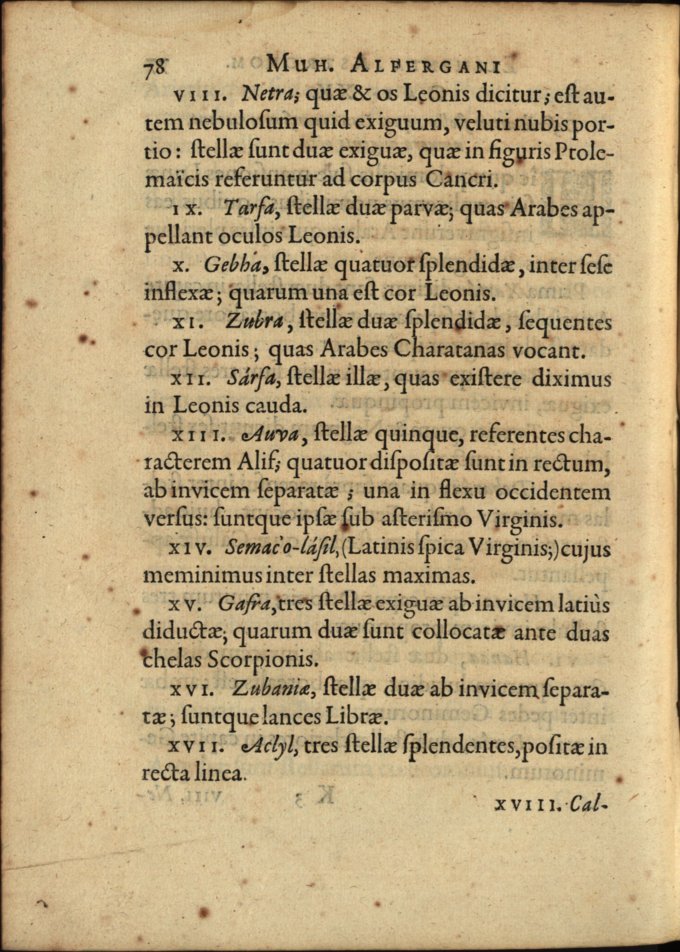 78 MUH. ALFERGANI
VIII. Netra; quæ & os Leonis dicitur; eſt au-
tem nebuloſum quid exiguum, veluti nubis por-
tio: ſtellæ ſunt duæ exiguæ, quæ in figuris Ptole-
maïcis referuntur ad corpus Cancri.
IX. Tarfa, ſtellæ duæ parvæ; quas Arabes ap-
pellant oculos Leonis.
X. Gebha, ſtellæ quatuor ſplendidæ, inter ſeſe
inflexæ; quarum una eſt cor Leonis.
XI. Zubra, ſtellæ duæ ſplendidæ, ſequentes
cor Leonis; quas Arabes Charatanas vocant.
XII. Sárfa, ſtellæ illæ, quas exiſtere diximus
in Leonis cauda.
XIII. Auva, ſtellæ quinque, referentes cha-
racterem Alif; quatuor diſpoſitæ ſunt in rectum,
ab invicem ſeparatæ; una in flexu occidentem
verſus: ſuntque ipſæ ſub aſteriſmo Virginis.
XIV. Semac'o-láſil, (Latinis ſpica Virginis;) cujus
meminimus inter ſtellas maximas.
XV. Gafra, tres ſtellæ exiguæ ab invicem latiùs
diductæ; quarum duæ ſunt collocatæ ante duas
chelas Scorpionis.
XVI. Zubaniæ, ſtellæ duæ ab invicem ſepara-
tæ; ſuntque lances Libræ.
XVII. Aclyl, tres ſtellæ ſplendentes, poſitæ in
recta linea.
XVIII. Cal-